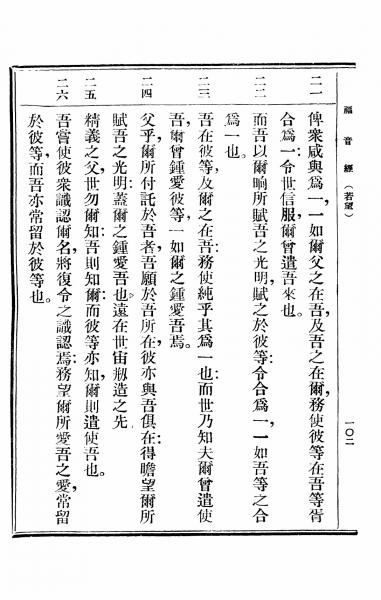 福音經(若望)
一〇二
二一
俾衆咸與爲一,一如爾父之在吾,及吾之在爾,務使彼等在吾等胥
合爲一:令世信服,爾曾遣吾來也。
二二
而吾以爾晌所賦吾之光明,賦之於彼等:令合爲一,一如吾等之合
爲一也。
二三
吾在彼等,及爾之在吾:務使純乎其爲一也:而世乃知夫爾曾遣使
吾,爾曾鍾愛彼等,一如爾之鍾愛吾焉。
二四
父乎,爾所付託於吾者,吾願於吾所在,彼亦與吾俱在:得瞻望爾所
賦吾之光明:蓋爾之鍾愛吾也,遠在世宙剏造之先
二五
精義之父,世勿爾知:吾則知爾:而彼等亦知,爾則遣使吾也。
二六
吾嘗使彼衆識認爾名,將復令之識認焉:務望爾所愛吾之愛,常留
於彼等,而吾亦常留於彼等也。